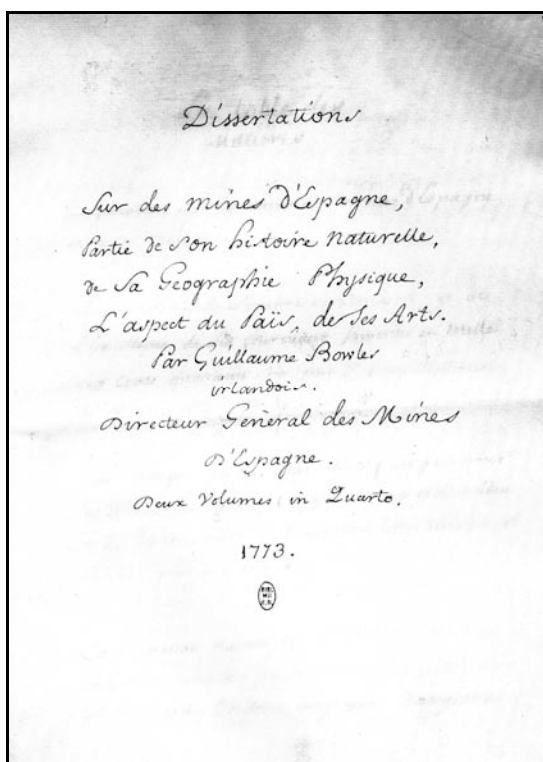 Dissertations
Sur des mines d'Espagne,
Partie de son histoire naturelle,
de Sa Géographie Physique,
L'aspect du Païs, de Ses Arts.
Par Guillaume Bowles
irlandois.
Directeur Général des Mines
D'Espagne.
Deux Volumes in Quarto.
1773.